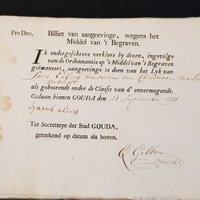 Pro Deo. Billiet van aangeevinge, wegens het
Middel van 't Begraven.
Ik ondergeschreve verklare by dezen, ingevolge
van de Ordonnantie op 't Middel van 't Begraven
geëmaneert, aangeevinge te doen van het Lyk van
als gehoorende onder de Classis van d' onvermogende.
Gedaan binnen GOUDA den 21 September
Jacob
Ter Secretarye der Stad GOUDA,
geteekend op datum als boven.